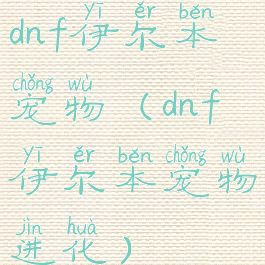 yī ěr běn
dnf伊尔本
chǒng wù
宠物（dnf
yī ěr běn chǒng wù
伊尔本宠物
jìn huà
进化）